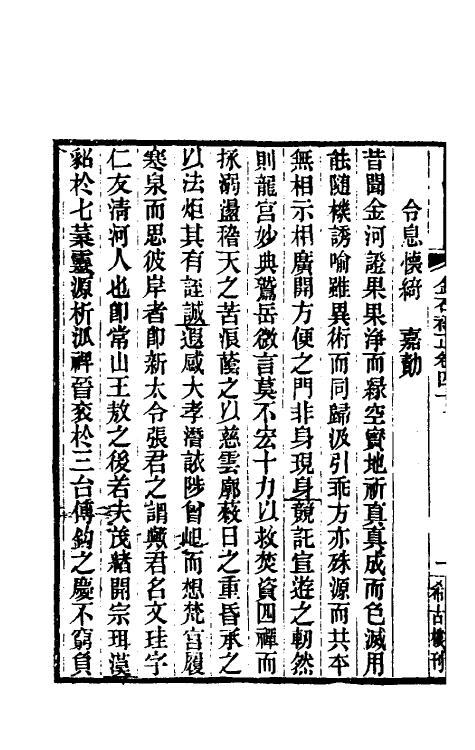 金石補正卷四十
一
希古樓刊
令息懷綺　嘉勣
昔聞金河證果果淨而緣空寶地祈真真成而色滅用
能隨機誘喻雖異術而同歸汲引乖方亦殊源而共本
無相示相廣開方便之門非身現身競託宣遊之軔然
則龍宮妙典鷲岳微言莫不宏十力以救焚資四禪而
拯溺盪稽天之苦浪蔭之以慈雲廓蔽日之重昏承之
以法炬其有誠遐感大孝潛該陟曾岵而想梵宮履
寒泉而思彼岸者卽新太令張君之謂歟君名文珪字
仁友淸河人也卽常山王敖之後若夫茂緒開宗珥漢
貂於七葉靈源析派禆晉袞於三台傅鈎之慶不窮負